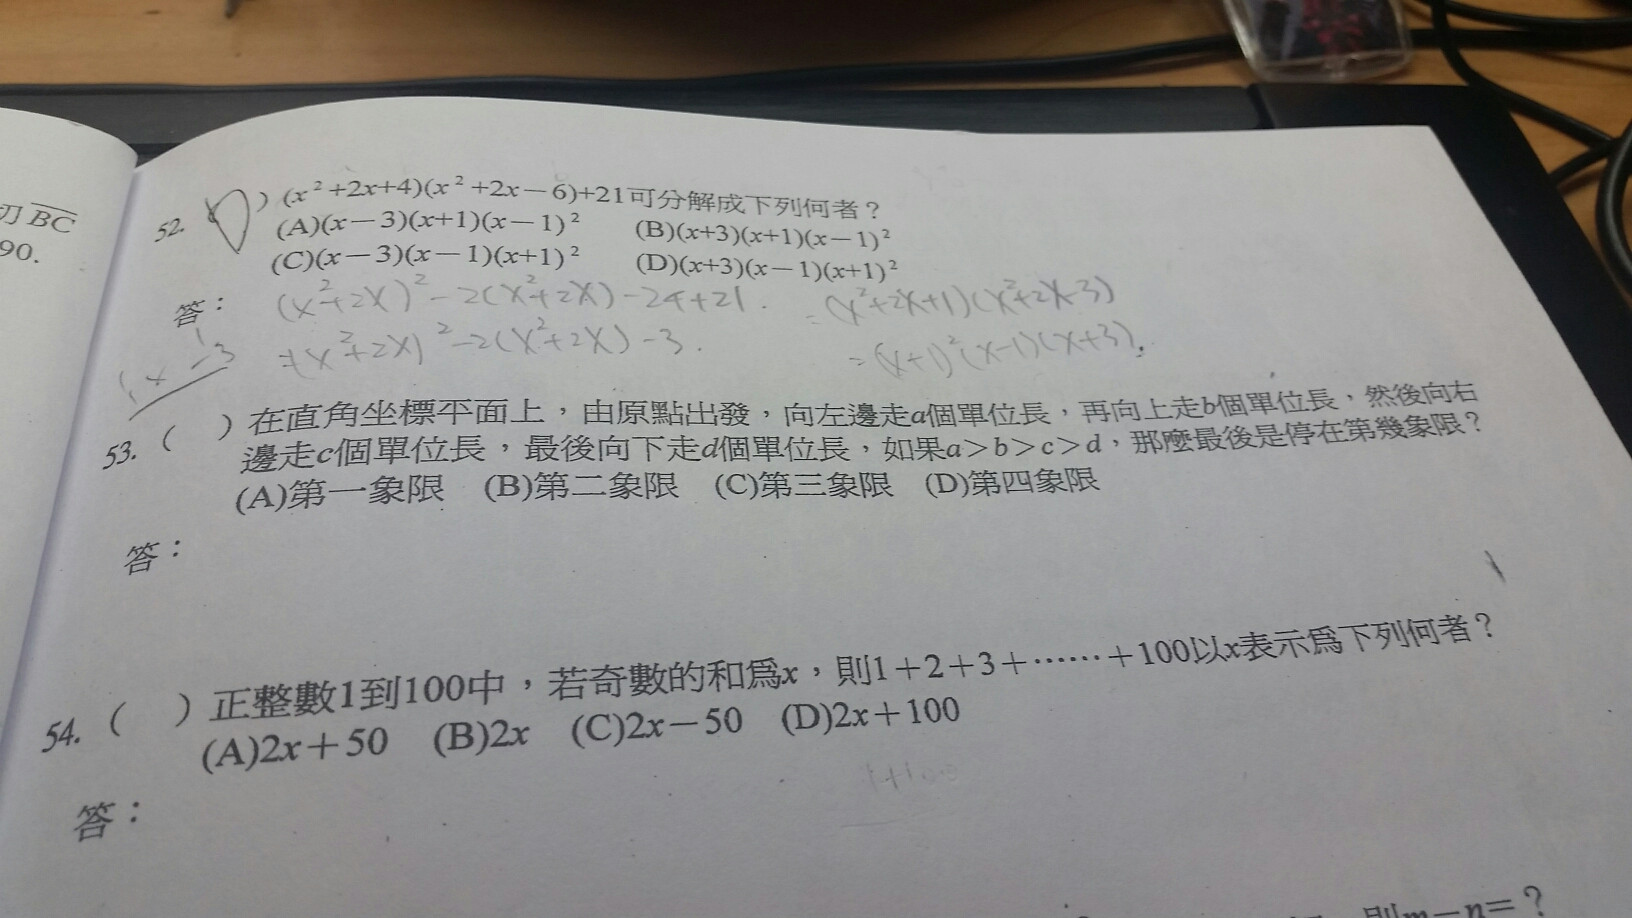 切 BC
90.
52. (D) (x²+2x+4)(x²+2x－6)+21可分解成下列何者？
(A)(x－3)(x+1)(x－1)² (B)(x+3)(x+1)(x－1)²
(C)(x－3)(x－1)(x+1)² (D)(x+3)(x－1)(x+1)²
答：
(x²+2x)²-2(x²+2x)-24+21.
=(x²+2x)²-2(x²+2x)-3.
=(x²+2x+1)(x²+2x-3)
=(x+1)²(x-1)(x+3).
1
1 x -3
53. ( ) 在直角坐標平面上，由原點出發，向左邊走a個單位長，再向上走b個單位長，然後向右
邊走c個單位長，最後向下走d個單位長，如果a＞b＞c＞d，那麼最後是停在第幾象限？
(A)第一象限 (B)第二象限 (C)第三象限 (D)第四象限
答：
54. ( ) 正整數1到100中，若奇數的和爲x，則1＋2＋3＋……＋100以x表示爲下列何者？
(A)2x＋50 (B)2x (C)2x－50 (D)2x＋100
1+100
答：
則m－n=？